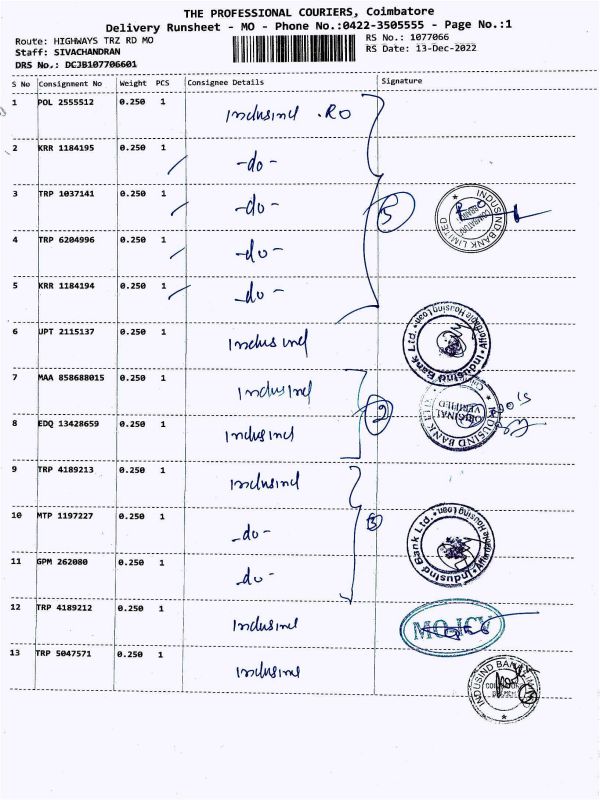 THE PROFESSIONAL COURIERS, Coimbatore
Delivery Runsheet - MO - Phone No.:0422-3505555 - Page No.:1
Route: HIGHWAYS TRZ RD MO
RS No.: 1077066
Staff: SIVACHANDRAN
RS Date: 13-Dec-2022
DRS No.: DCJB107706601
S No Consignment No Weight PCS Consignee Details Signature
1 POL 2555512 0.250 1 Indusind .RO
2 KRR 1184195 0.250 1 -do-
3 TRP 1037141 0.250 1 -do-
5
INDUSIND BANK LIMITED
4 TRP 6204996 0.250 1 -do-
5 KRR 1184194 0.250 1 -do-
6 UPT 2115137 0.250 1 Indusind
IndusInd Bank Ltd. Affordable Housing Loan
7 MAA 858688015 0.250 1 Indusind
ORIGINAL VERIFIED
8 EDQ 13428659 0.250 1 Indusind
9 TRP 4189213 0.250 1 Indusind
10 MTP 1197227 0.250 1 -do-
3
IndusInd Bank Ltd. Affordable Housing Loan
11 GPM 262080 0.250 1 -do-
12 TRP 4189212 0.250 1 Indusind
13 TRP 5047571 0.250 1 Indusind